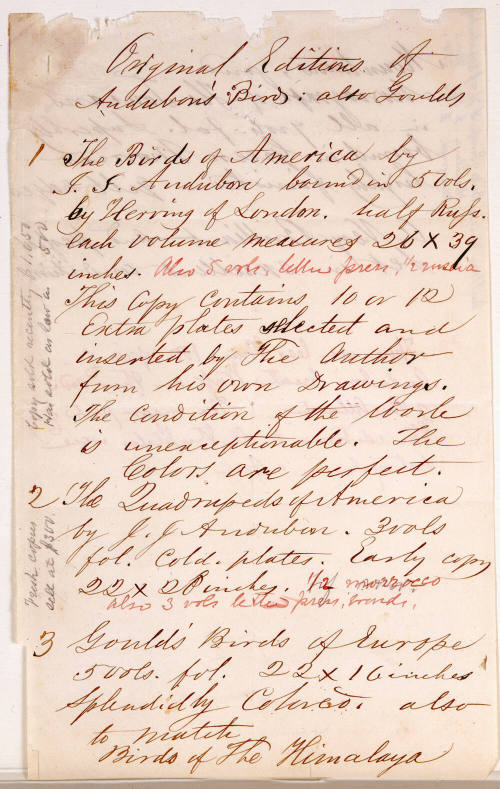 Original Editions of
Audubon's Birds: also Goulds
1 The Birds of America by
J. J. Audubon bound in 5 Vols.
by Herring of London. half Russ.
each volume measures 26 X 39
inches. Also 5 vols letter press, 1/2 russia
This Copy contains 10 or 12
Extra plates selected and
inserted by The Author
from his own Drawings.
The Condition of the Work
is unexceptionable. The
Colors are perfect.
2 The Quadrupeds of America
by J. J Audubon. 3 vols
fol. Cold. plates. Early copy
22 x 28 inches. 1/2 morrocco
also 3 vols letter press,
3 Gould's Birds of Europe
5 Vols. fol. 22 x 16 inches
Splendidly Colored. also
to match
Birds of The Himalaya
Copy sold recently $1,050
Has sold as low as 500
Fresh copies
sell at $300.